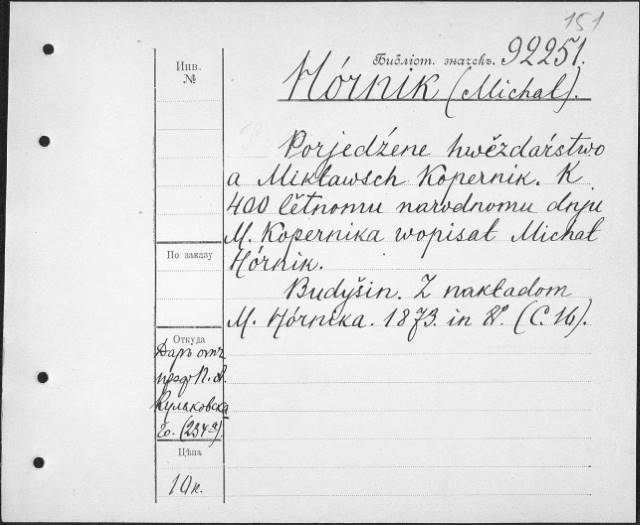 151
Библіот. значекъ. 92251.
Инв.
№
Hórnik (Michał).
Porjedźene hwězdaŕstwo
a Mikławsch Kopernik. K
400 lětnomu narodnomu dnju
M. Kopernika wopisał Michał
Hórnik.
Budyšin. Z nakładom
M. Hórnika. 1873. in 8º. (C. 16).
По заказу
Откуда
Даръ отъ
проф. П. А.
Кулаковска
го. (234
Цѣна
10 к.